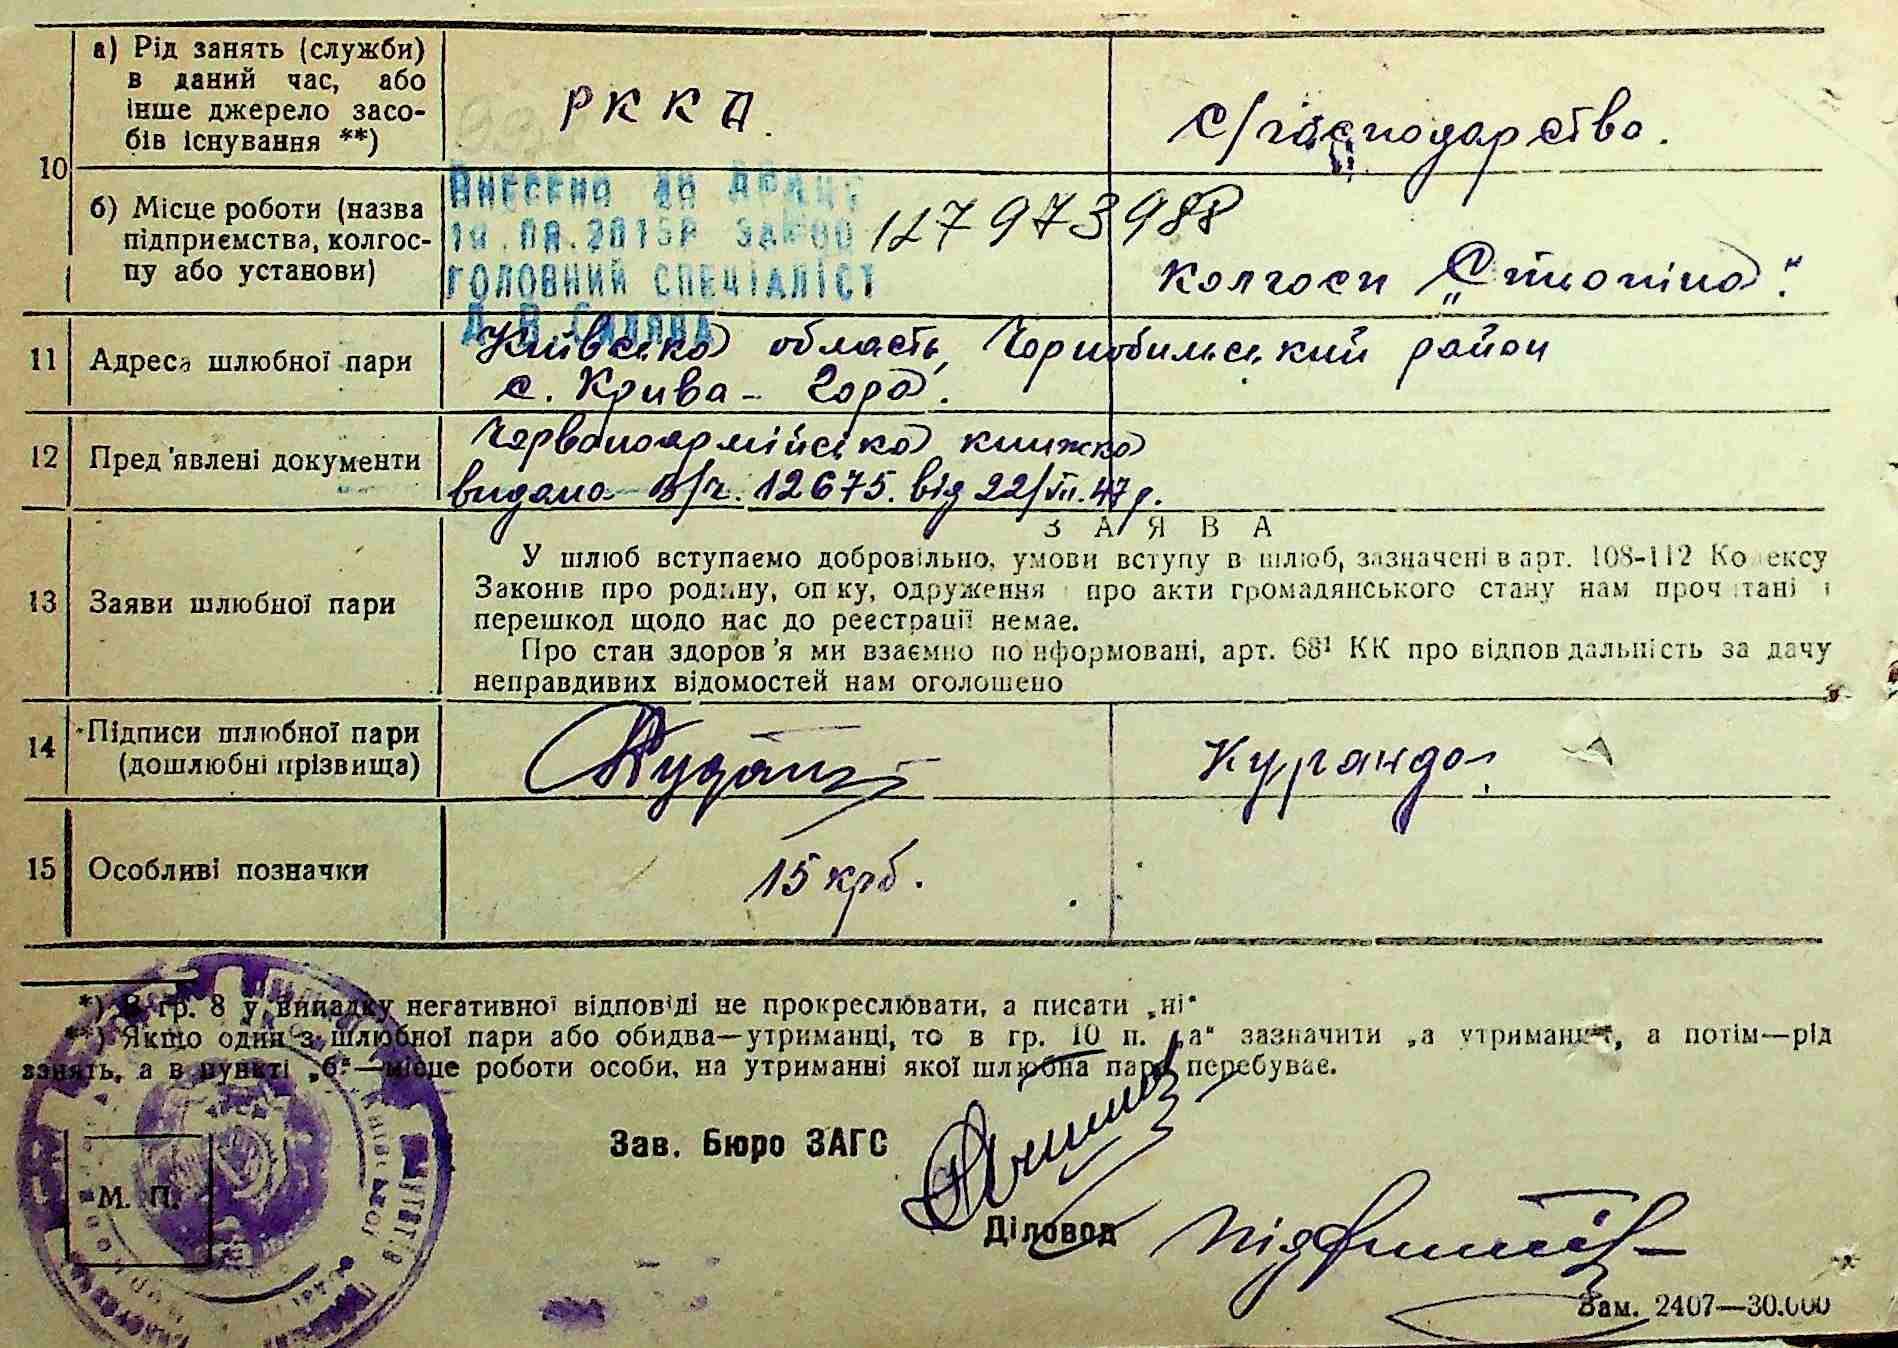 а) Рід занять (служби)
в даний час, або
інше джерело засо-
бів існування **)
РККА.
с/господарство.
10
б) Місце роботи (назва
підприємства, колгос-
пу або установи)
Внесено до ДРАЦС
ГОЛОВНИЙ СПЕЦІАЛІСТ
колгосп
11
Адреса шлюбної пари
Київська область, Чорнобильський район
с. Крива-Гора.
12
Пред'явлені документи
Червоноармійська книжка
видана в/ч. 12675. від 22/VII. 47 р.
13
Заяви шлюбної пари
ЗАЯВА
У шлюб вступаємо добровільно, умови вступу в шлюб, зазначені в арт. 108-112 Кодексу
Законів про родину, опіку, одруження і про акти громадянського стану нам прочитані і
перешкод щодо нас до реєстрації немає.
Про стан здоров'я ми взаємно поінформовані, арт. 68¹ КК про відповідальність за дачу
неправдивих відомостей нам оголошено
14
Підписи шлюбної пари
(дошлюбні прізвища)
Курганда
15
Особливі позначки
15 крб.
*) В гр. 8 у випадку негативної відповіді не прокреслювати, а писати „ні"
**) Якщо один з шлюбної пари або обидва—утриманці, то в гр. 10 п. „а" зазначити „а утриманні", а потім—рід
занять, а в пункті „б"—місце роботи особи, на утриманні якої шлюбна пара перебуває.
М. П.
Зав. Бюро ЗАГС
Діловод
Зам. 2407—30.000